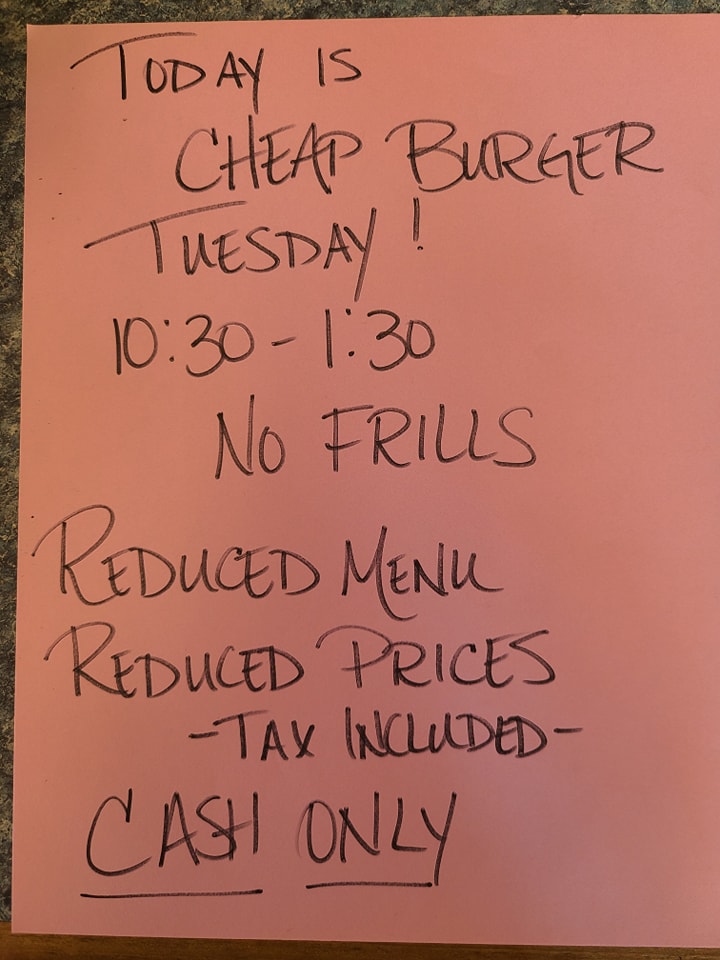 TODAY IS
CHEAP BURGER
TUESDAY!
10:30 - 1:30
NO FRILLS
REDUCED MENU
REDUCED PRICES
-TAX INCLUDED-
CASH ONLY